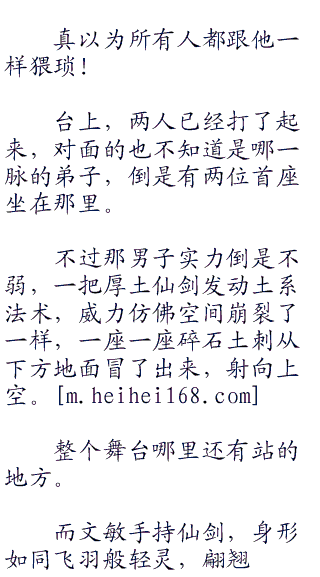 真以为所有人都跟他一
样猥琐！
台上，两人已经打了起
来，对面的也不知道是哪一
脉的弟子，倒是有两位首座
坐在那里。
不过那男子实力倒是不
弱，一把厚土仙剑发动土系
法术，威力仿佛空间崩裂了
一样，一座一座碎石土刺从
下方地面冒了出来，射向上
空。[m.heihei168.com]
整个舞台哪里还有站的
地方。
而文敏手持仙剑，身形
如同飞羽般轻灵，翩翘